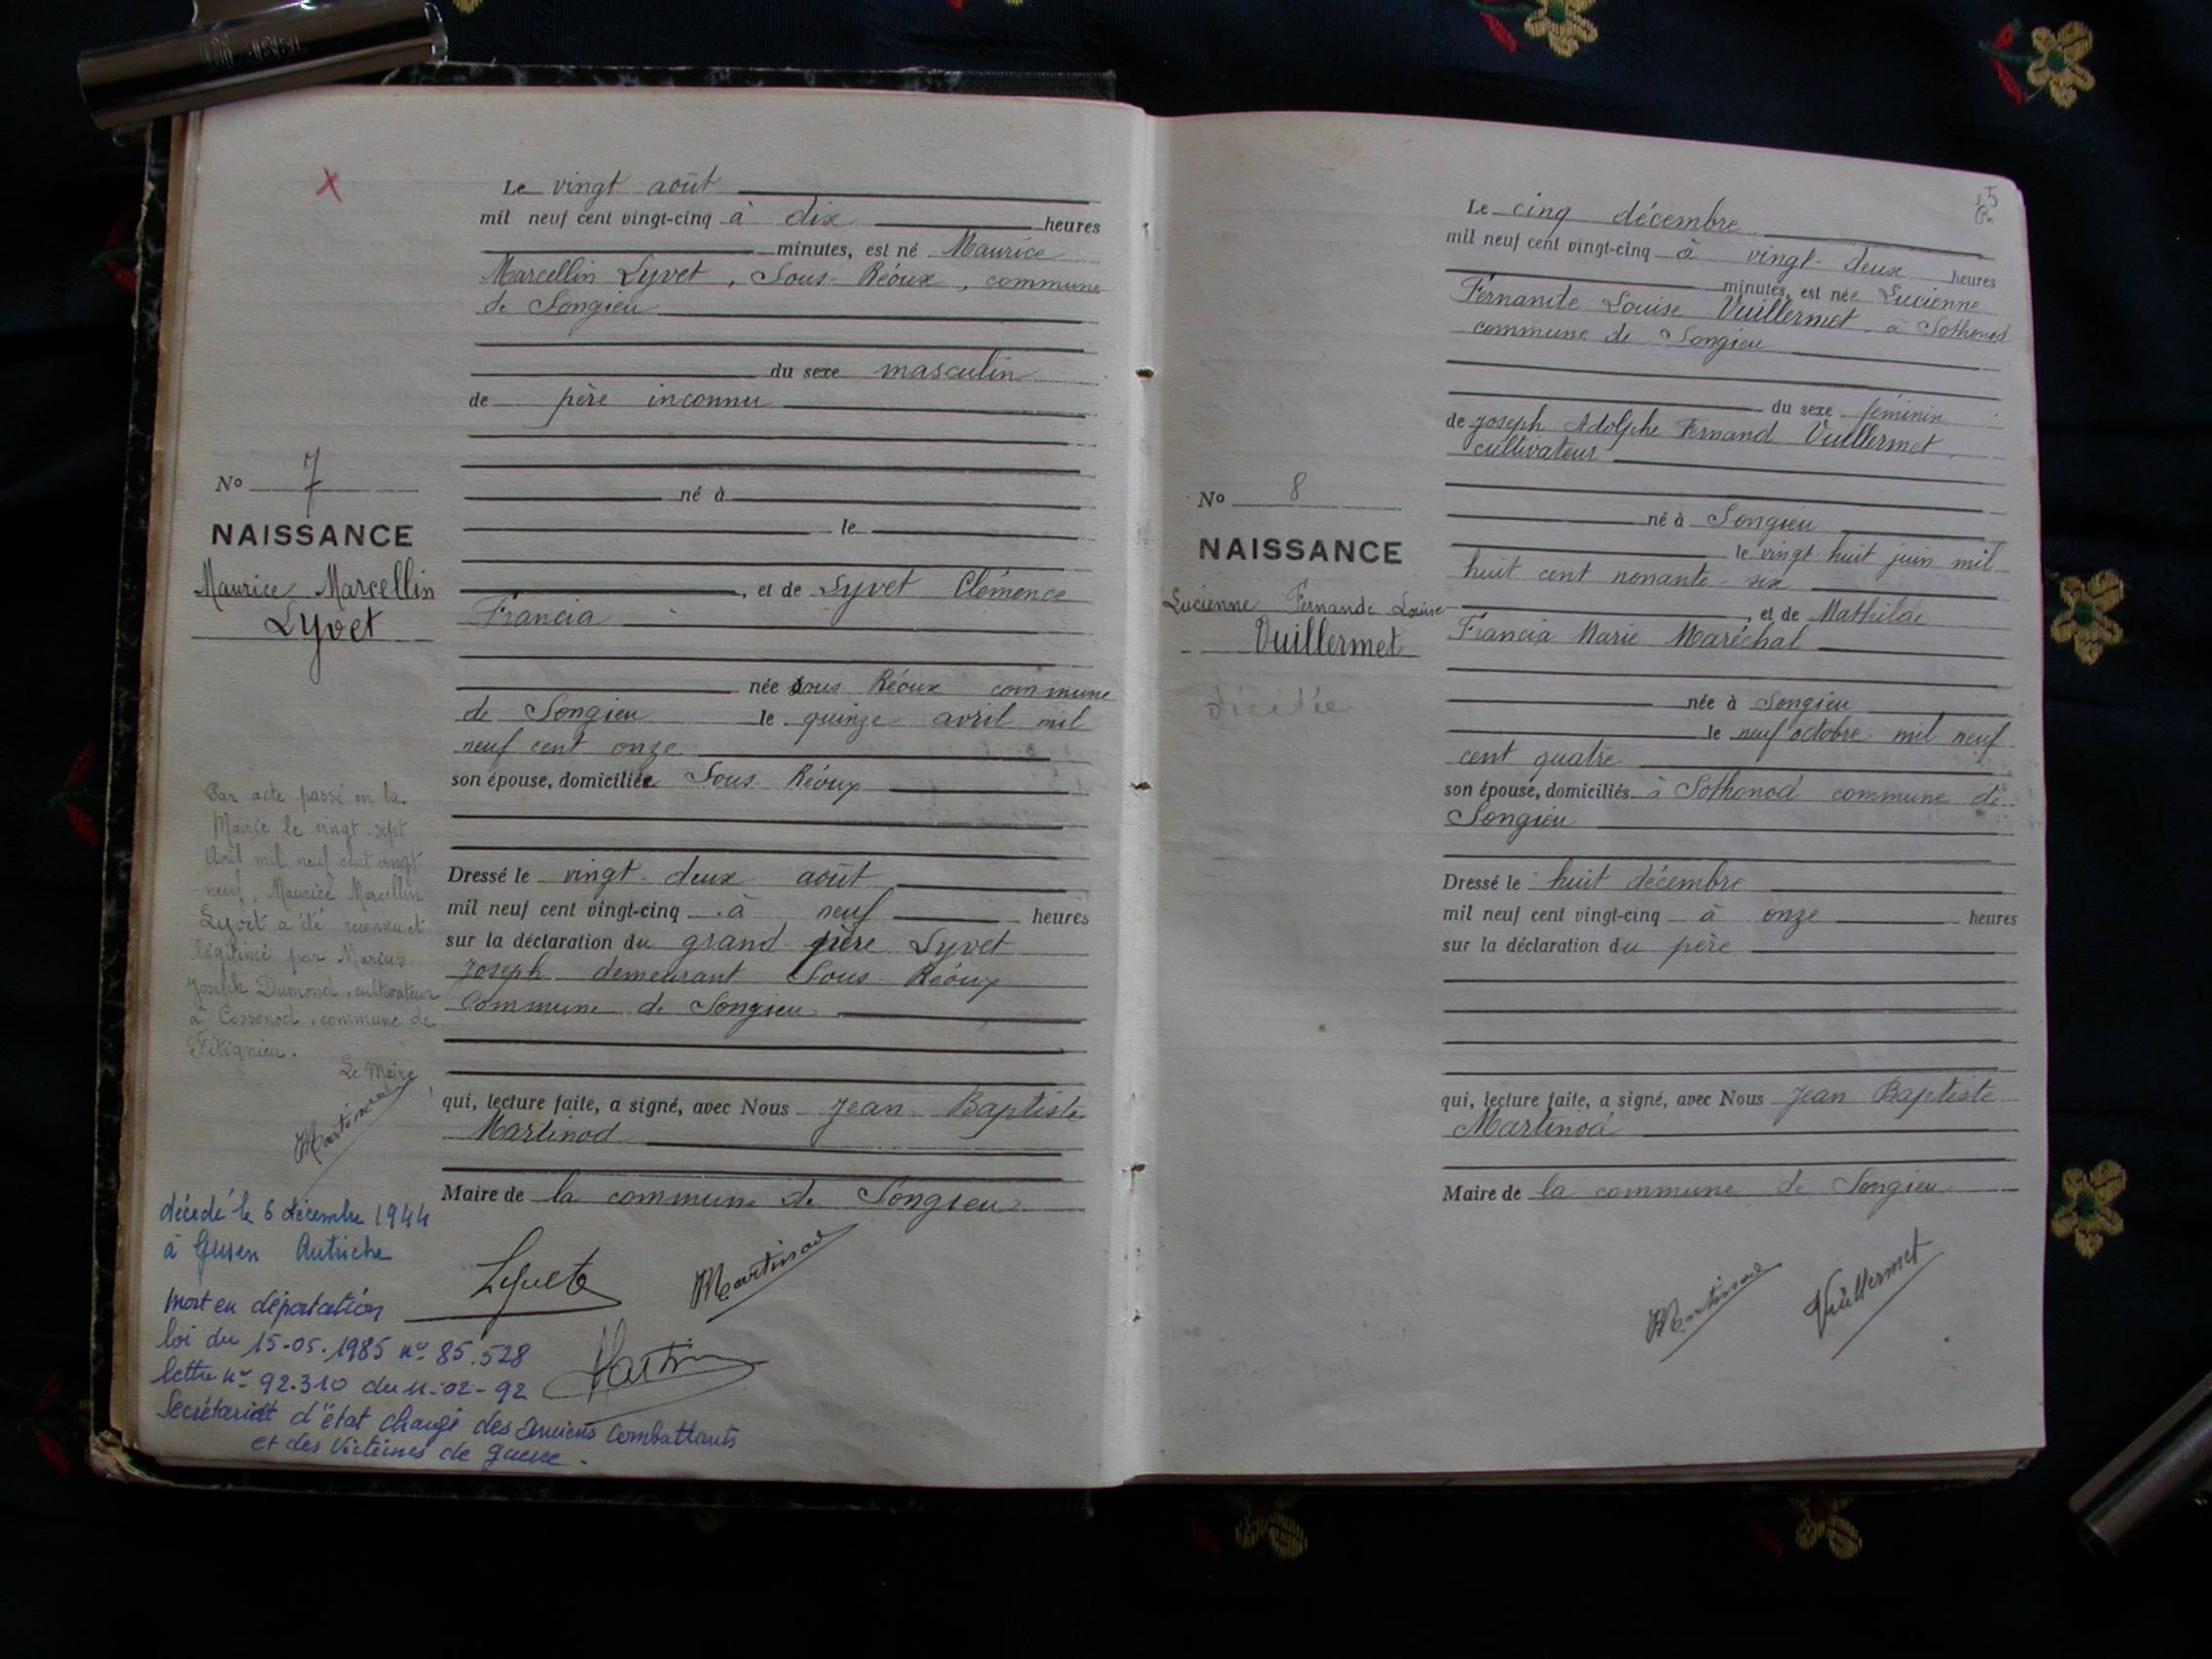 Le vingt août
mil neuf cent vingt-cinq à dix heures
minutes, est né Maurice
Marcellin Lyvet, Sous-Réoux, commune
de Songieu
du sexe masculin
de père inconnu
né à
le
, et de Lyvet Clémence
Francia
née sous Réoux commune
de Songieu le quinze avril mil
neuf cent onze
son épouse, domiciliée Sous-Réoux
Dressé le vingt-deux août
mil neuf cent vingt-cinq à neuf heures
sur la déclaration du grand-père Lyvet
Joseph demeurant Sous-Réoux
Commune de Songieu
qui, lecture faite, a signé, avec Nous Jean-Baptiste
Martinod
Maire de la commune de Songieu
Martinod
No 7
NAISSANCE
Maurice Marcellin
Lyvet
Par acte passé en la
Mairie le vingt-sept
Avril mil neuf cent vingt
neuf, Maurice Marcellin
Lyvet a été reconnu et
légitimé par Marius
Joseph Dumond, cultivateur
à Cossonod, commune de
Fitignieu.
Le Maire
Martinod
décédé le 6 décembre 1944
à Gusen Autriche
mort en déportation
loi du 15-05-1985 n° 85.528
lettre n° 92.310 du 11-02-92
Secrétariat d'état chargé des Anciens Combattants
et des Victimes de guerre.
Le cinq décembre
mil neuf cent vingt-cinq à vingt-deux heures
minutes, est née Lucienne
Fernande Louise Vuillermet à Sothonod
commune de Songieu
du sexe féminin
de Joseph Adolphe Fernand Vuillermet,
cultivateur
né à Songieu
le vingt huit juin mil
huit cent nonante-six
, et de Mathilde
Francia Marie Maréchal
née à Songieu
le neuf octobre mil neuf
cent quatre
son épouse, domiciliés à Sothonod commune de
Songieu
Dressé le huit décembre
mil neuf cent vingt-cinq à onze heures
sur la déclaration du père
qui, lecture faite, a signé, avec Nous Jean Baptiste
Martinod
Maire de la commune de Songieu
Martinod Vuillermet
No 8
NAISSANCE
Lucienne Fernande Louise
Vuillermet
décédée